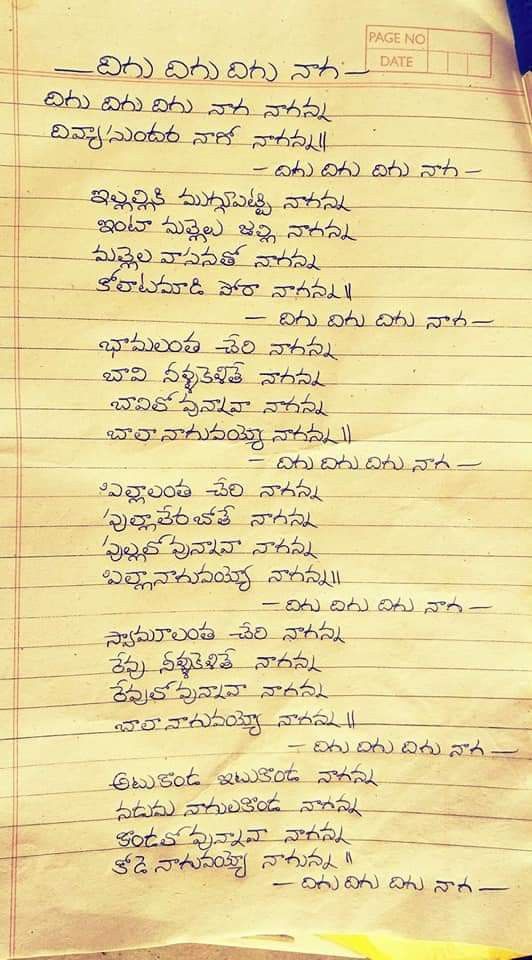 PAGE NO
DATE
— దిగు దిగు దిగు నాగ —
దిగు దిగు దిగు నాగ నాగన్న
దివ్యా సుందర నాగో నాగన్న॥
— దిగు దిగు దిగు నాగ —
ఇల్లల్లికి ముగ్గుపెట్టి నాగన్న
ఇంటా మల్లెలు జల్లి నాగన్న
మల్లెల వాసనతో నాగన్న
కోలాటమాడి పోరా నాగన్న॥
— దిగు దిగు దిగు నాగ —
భామలంత చేరి నాగన్న
బావి నీళ్ళకెళితే నాగన్న
బావిలో వున్నావా నాగన్న
బాలా నాగువయ్యో నాగన్న॥
— దిగు దిగు దిగు నాగ —
పిల్లాలంత చేరి నాగన్న
పుల్లాలేరబోతే నాగన్న
పుల్లలో వున్నావా నాగన్న
పిల్లా నాగువయ్యో నాగన్న॥
— దిగు దిగు దిగు నాగ —
స్వామూలంత చేరి నాగన్న
రేవు నీళ్ళకెళితే నాగన్న
రేవులో వున్నావా నాగన్న
బాలా నాగువయ్యో నాగన్న॥
— దిగు దిగు దిగు నాగ —
అటుకొండ ఇటుకొండ నాగన్న
నడుమ నాగులకొండ నాగన్న
కొండలో వున్నావా నాగన్న
కోడె నాగువయ్యో నాగున్న॥
— దిగు దిగు దిగు నాగ —